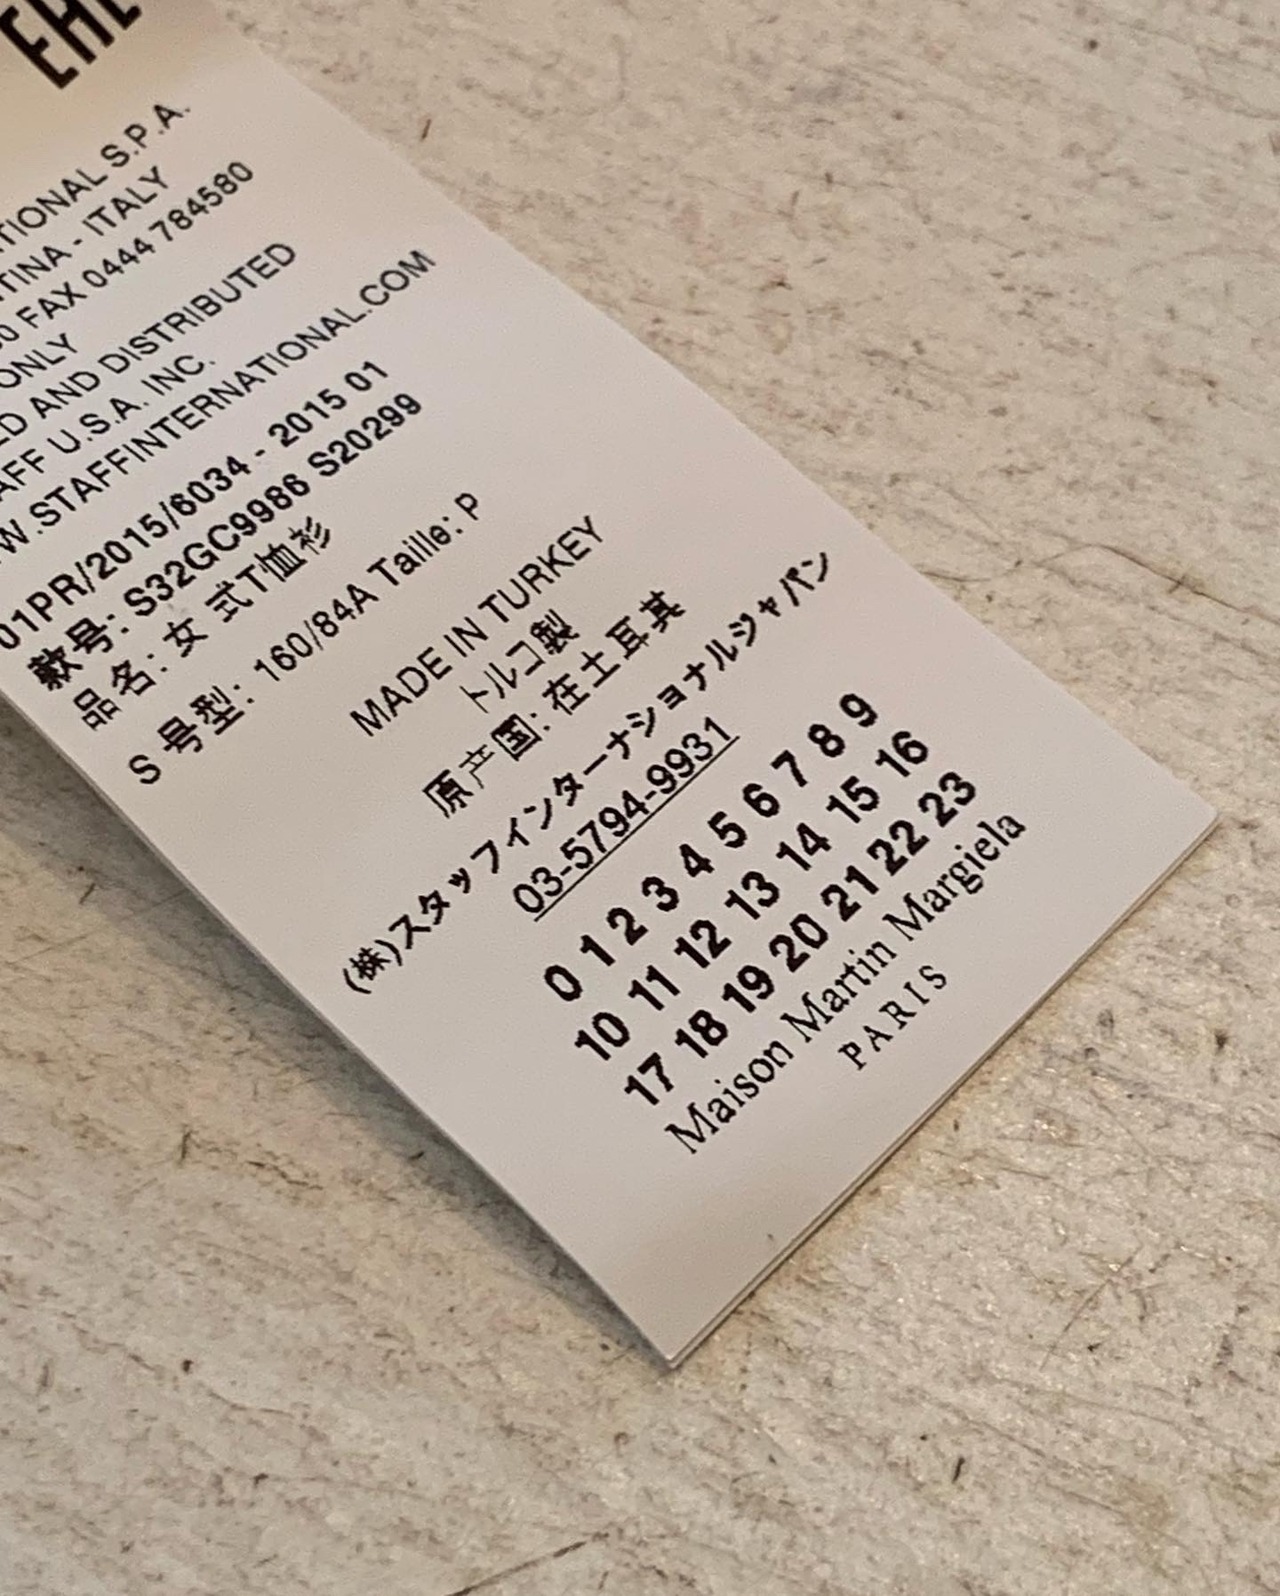 EAC
TIONAL S.P.A.
TINA - ITALY
0 FAX 0444 784580
ONLY
ED AND DISTRIBUTED
AFF U.S.A. INC.
W.STAFFINTERNATIONAL.COM
01PR/2015/6034 - 2015 01
款号: S32GC9986 S20299
品名: 女 式T恤衫
S 号型: 160/84A Taille: P
MADE IN TURKEY
トルコ製
原产国: 在土耳其
(株)スタッフインターナショナルジャパン
03-5794-9931
0 1 2 3 4 5 6 7 8 9
10 11 12 13 14 15 16
17 18 19 20 21 22 23
Maison Martin Margiela
PARIS